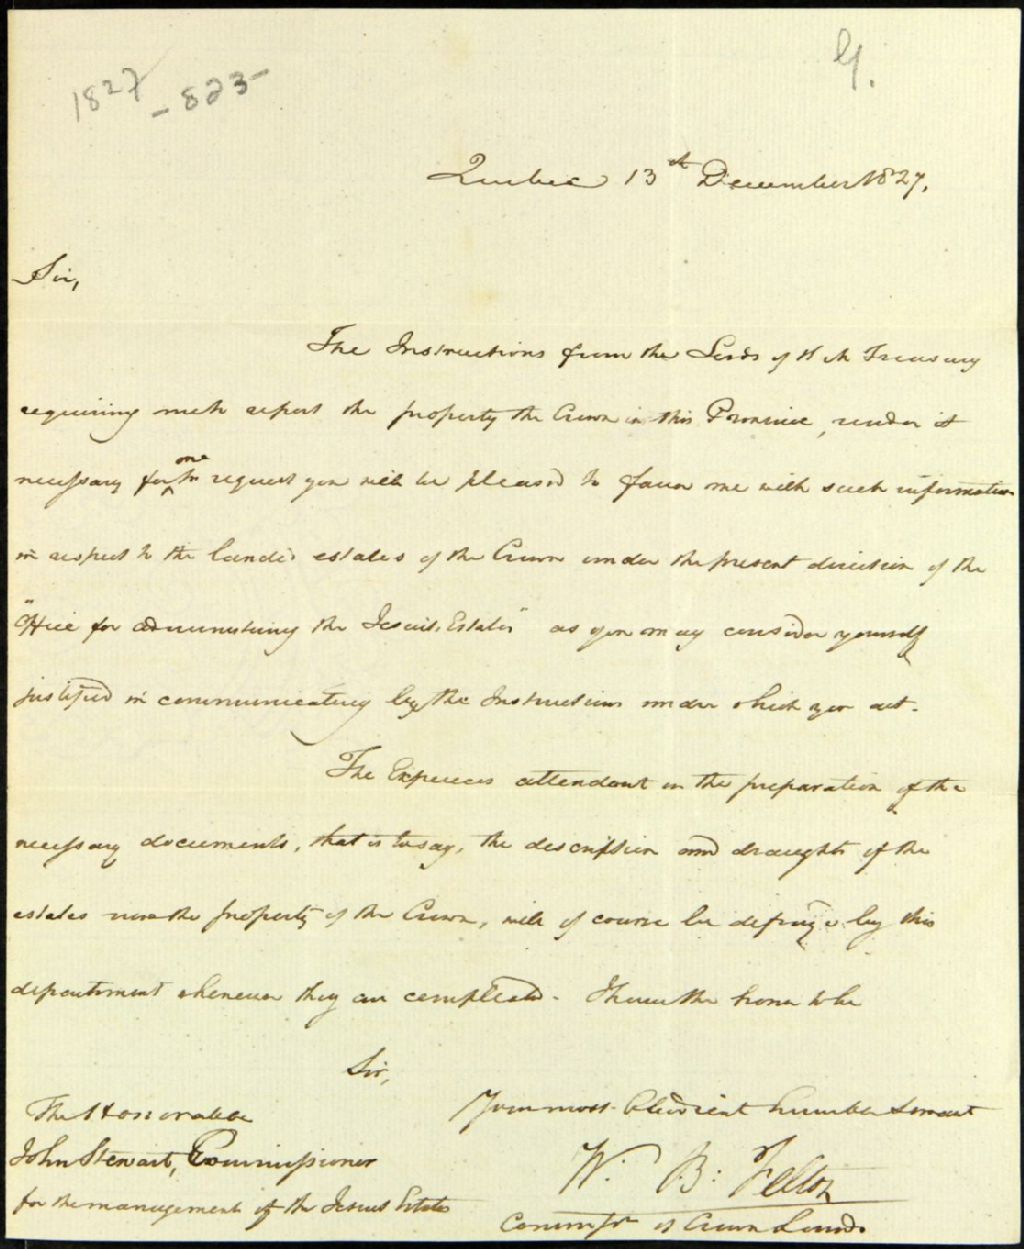 1827 - 823
G.
Quebec 13th December 1827.
Sir,
The Instructions from the Lords of H M Treasury
requiring me to report the property the Crown in this Province, render it
necessary for me to request you will be pleased to favor me with such information
in respect to the landed estates of the Crown under the present direction of the
"Office for administering the Jesuits Estates" as you may consider yourself
justified in communicating by the Instructions under which you act.
The Expences attendant on the preparation of the
necessary documents, that is to say, the description and draughts of the
estates now the property of the Crown, will of course be defrayed by this
department whenever they are completed. I have the honor to be
Sir,
Your most Obedient humble Servant
W. B: Felton
Commissr of Crown Lands
The Honorable
John Stewart, Commissioner
for the management of the Jesuits Estates